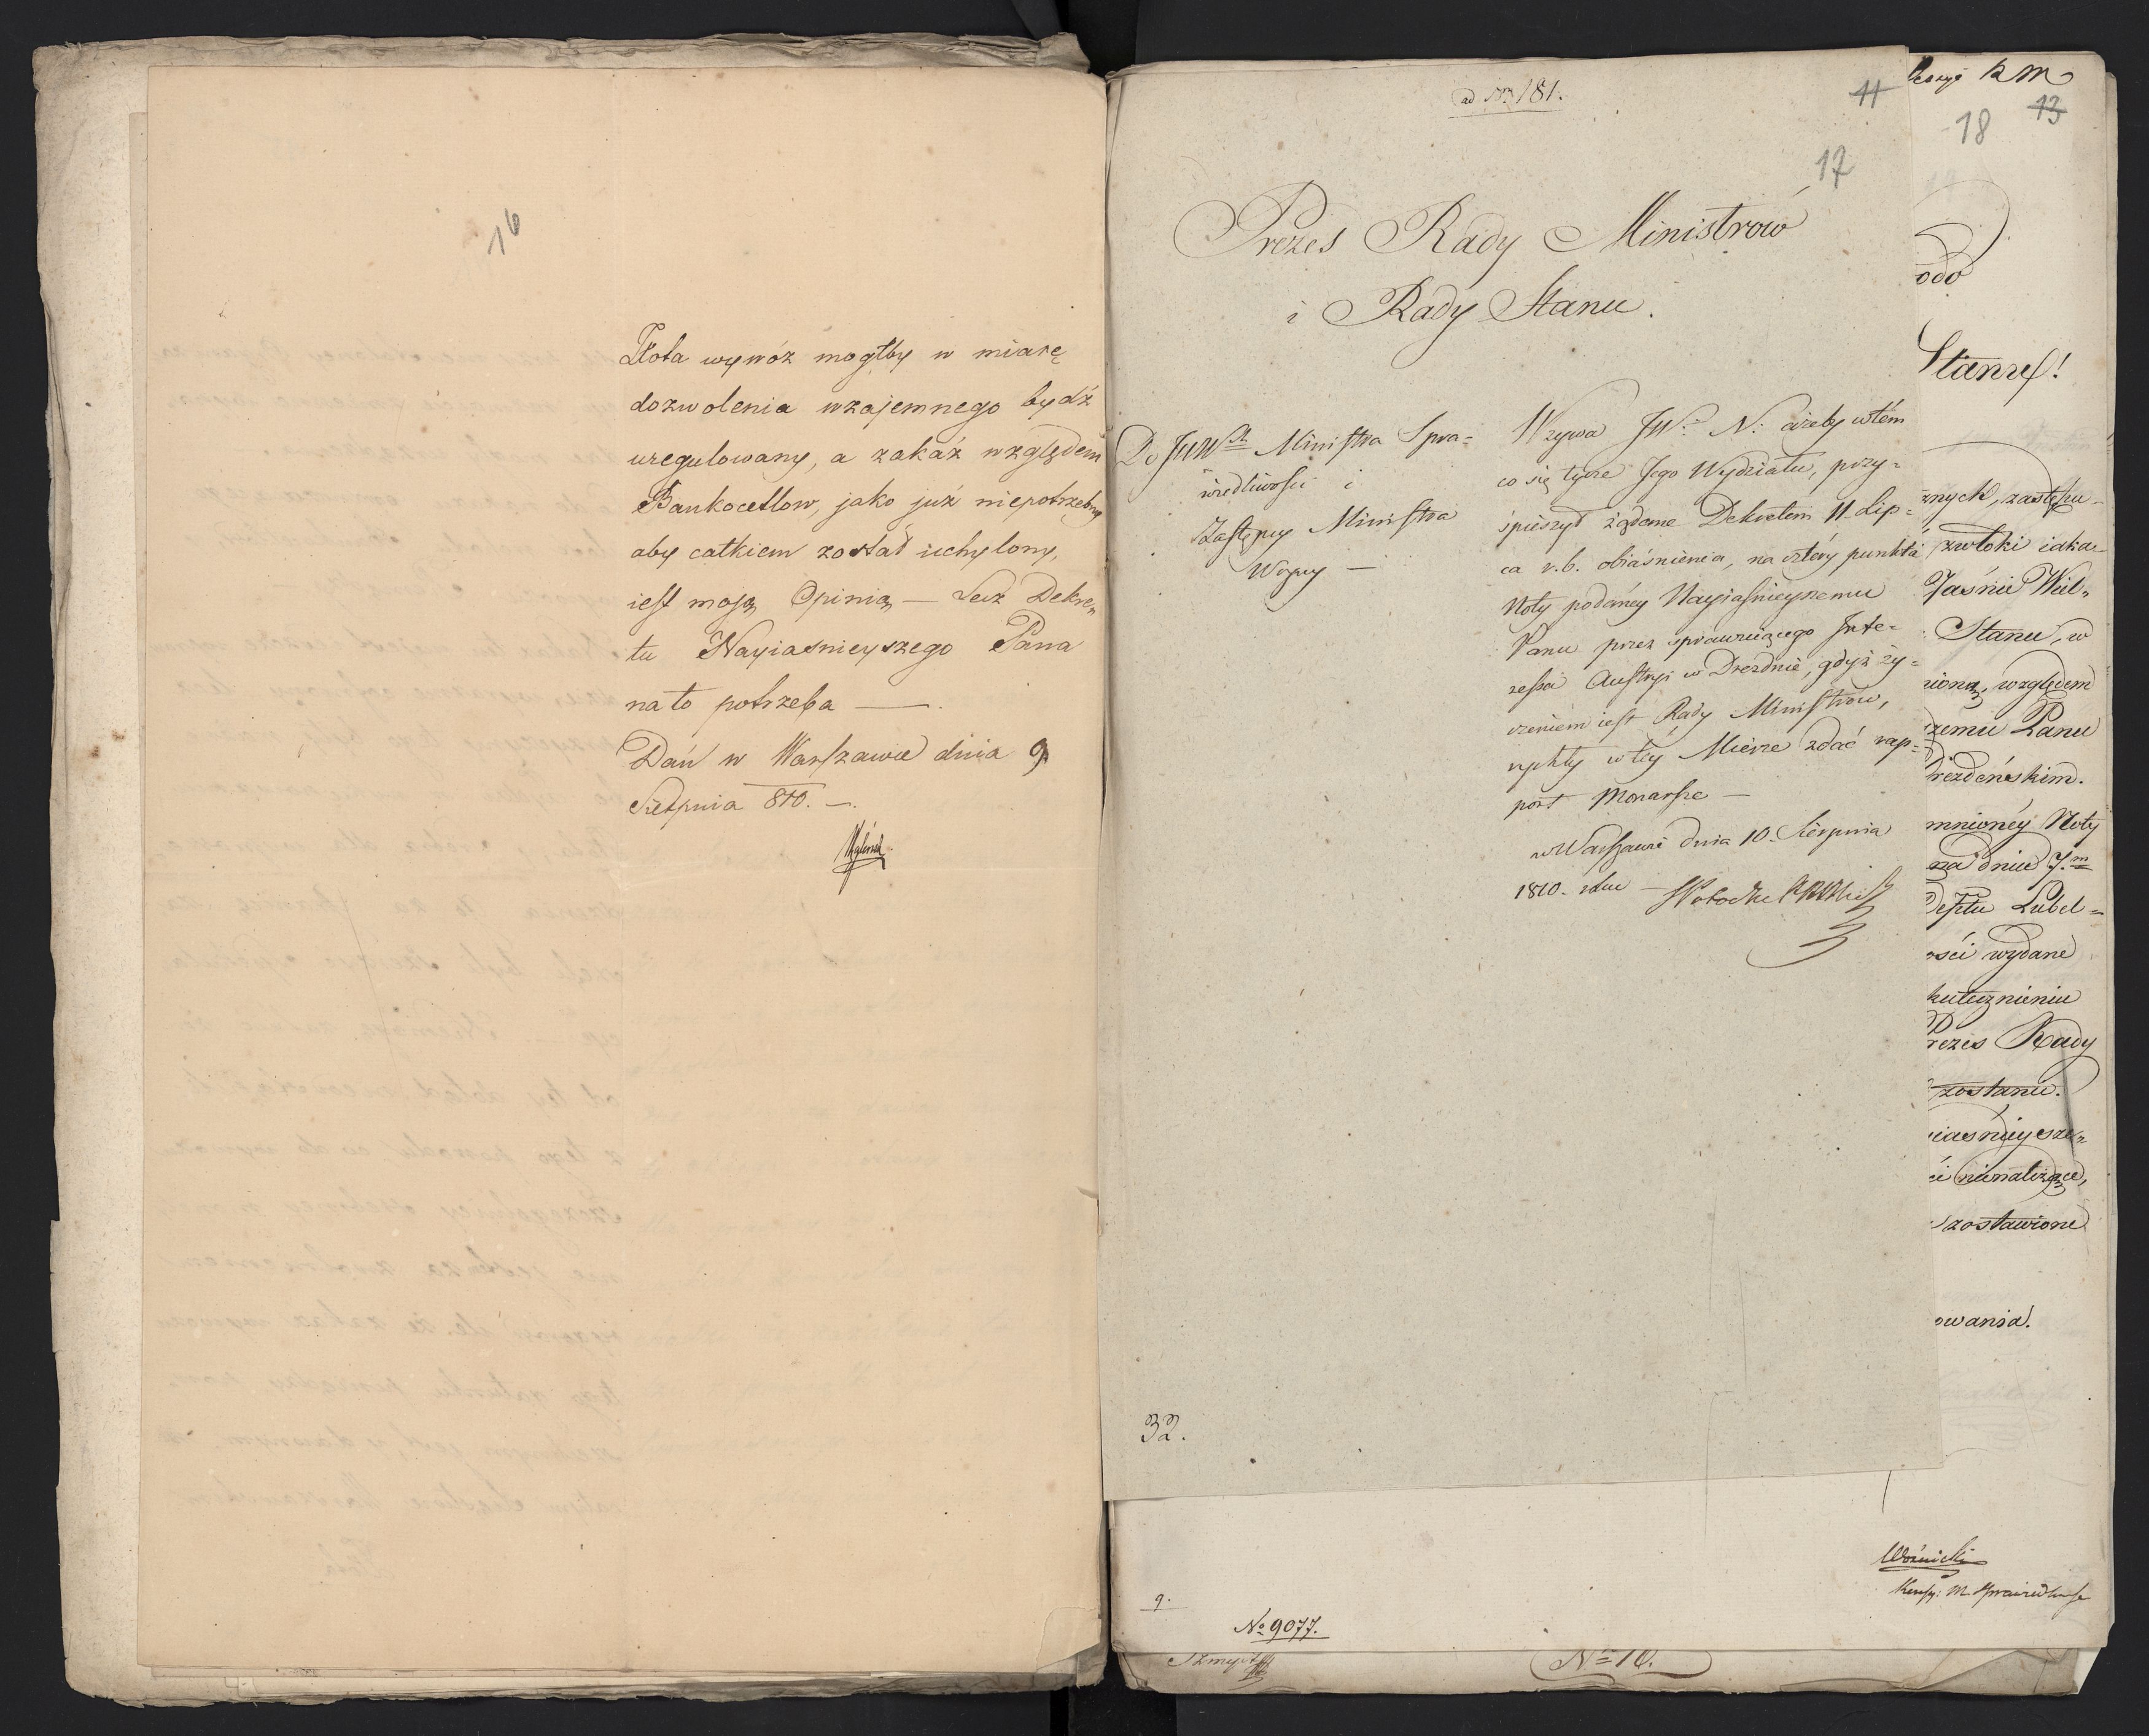 16
Złota wywóz mogłby w miarę
dozwolenia wzajemnego bydź
uregulowany, a zakáz względem
Bankocetlow, jako już niepotrzebny
aby całkiem został uchylony,
iest moją Opinią — Lecz Dekre„
tu Nayiasnieyszego Pana
na to potrzeba —.
Dań w Warszawie dnia 9
Sierpnia 810. —.
ad Nr 181.
11
17
Prezes Rady Ministrow
i Rady Stanu.
Do JWW Ministra Spra=
wiedliwości i
Zastępcy Ministra
Woyny —
Wzywa JW: N: ażeby wtém
co się tycze Jego Wydziału, przy=
śpieszył żądane Dekretem 11 Lip=
ca r. b. obiaśnienia, na cztéry punktá
Noty podanéy Nayiaśnieyszemu
Panu przez sprawuiącego Inte=
ressa Austryi w Dreźdnie, gdyż ży=
czeniem iest Rady Ministrów,
rychły w téy Mierze zdać rap=
port Monarsze —
w Warszawie dnia 10. Sierpnia
1810. roku —
32.
kM
13
18
odo
Stanu!
znych, zastępu-
zwłoki iaka-
Jaśnie Wiel„
Stanu, w
niona, względem
szemu Panu
Drezdeńskim.
mnionéy Noty
na dniu 7.m
Deptu Lubel=
ości wydane
kutecznieniu
Prezes Rady
zostanie.
iaśnieysze„
ci nienależące,
zostawione
owania.
Woźnicki
9.
No 9077.
No 10.